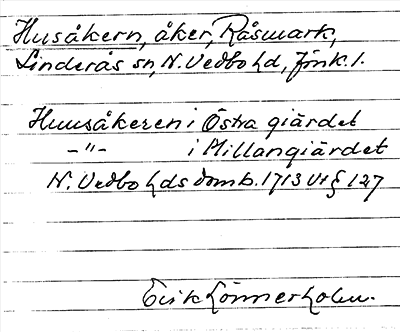 Husåkern, åker, Råsmark,
Linderås sn, N. Vedbo hd, Jönk. l.
Huusåkeren i Östra giärdet
-"- i Millangiärdet
N. Vedbo hds domb. 1713 vt § 127
Erik Lönnerholm.